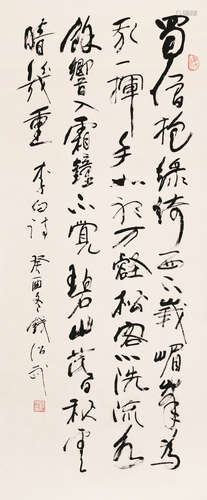 蜀僧抱綠綺西下峨嵋峰為
我一揮手如聽万壑松客心洗流水
餘響入霜鐘不覺碧山暮秋雲
暗幾重 李白詩 癸酉冬錢紹武